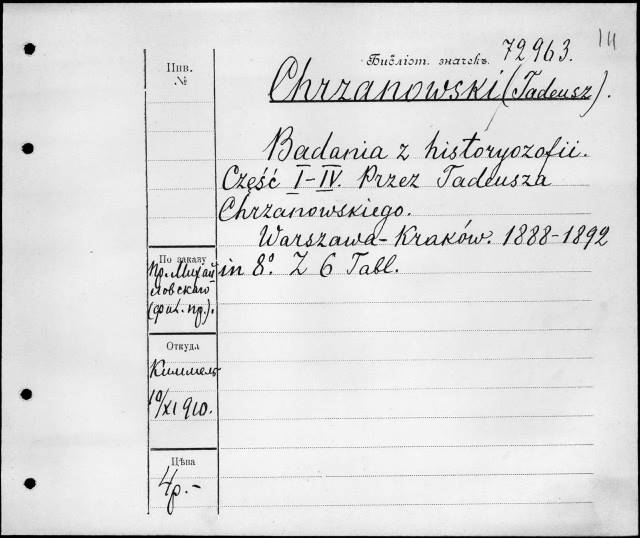 111
Библіот. значекъ 72963.
Инв.
№
Chrzanowski (Tadeusz).
Badania z historyozofii.
Część I-IV. Przez Tadeusza
Chrzanowskiego.
Warszawa-Kraków. 1888-1892
in 8º. Z 6 Tabl.
По заказу
пр. Михай
ловскаго
(фил. пр.).
Откуда
Киммель
10/XI 910.
Цѣна
4р.-